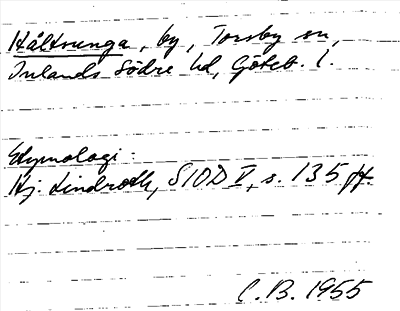 Håltsunga, by, Torsby sn,
Inlands Södre hd, Göteb. l.
Etymologi:
Hj. Lindroth, SIOD V, s. 135 ff.
C.B. 1955